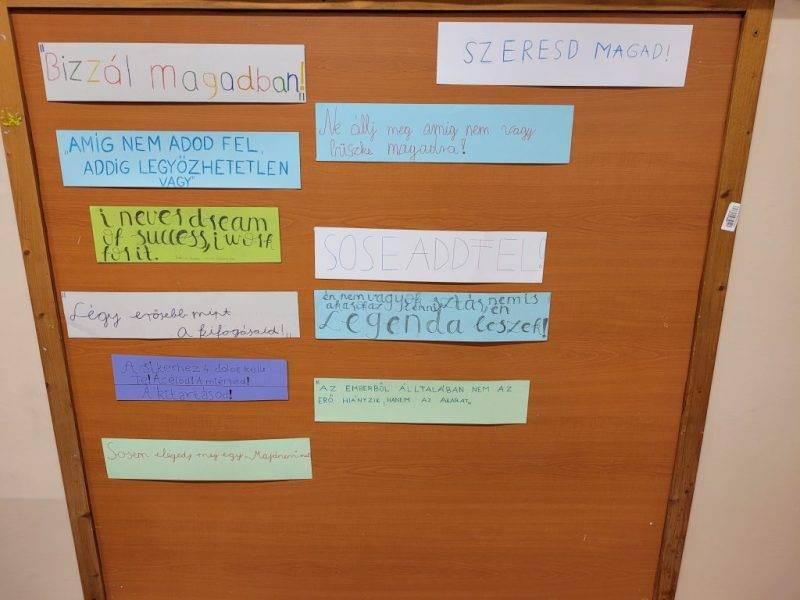 "Bizzál magadban!"
SZERESD MAGAD!
Ne állj meg amig nem vagy
büszke magadra!
„AMIG NEM ADOD FEL,
ADDIG LEGYŐZHETETLEN
VAGY"
i never dream
of success, i work
for it.
SOSE ADD FEL!
"Légy erősebb mint
a kifogásaid!"
én nem vagyok sztár, nem is
akarok az lenni, én
Legenda leszek!
A sikerhez 4 dolog kell:
Te! A célod! A miérted!
A kitartásod!
"AZ EMBERBŐL ÁLLTALÁBAN NEM AZ
ERŐ HIÁNYZIK, HANEM AZ AKARAT.
Sosem elégedj meg egy „Majdnem"-mel